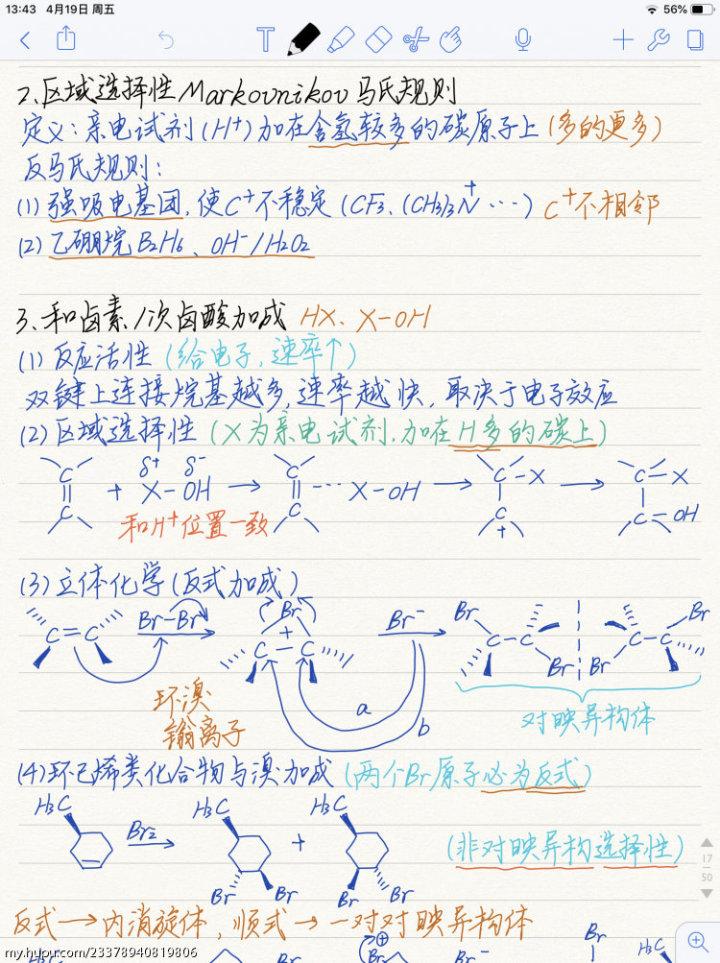 13:43 4月19日 周五
56%
2、区域选择性 Markovnikov 马氏规则
定义：亲电试剂(H+)加在含氢较多的碳原子上(多的更多)
反马氏规则：
(1) 强吸电基团,使C+不稳定(CF3、(CH3)3N+ ···) C+不相邻
(2) 乙硼烷B2H6、OH-/H2O2
3、和卤素/次卤酸加成 HX、X-OH
(1) 反应活性(给电子,速率↑)
双键上连接烷基越多,速率越快,取决于电子效应
(2) 区域选择性(X为亲电试剂,加在H多的碳上)
C C + δ+ δ- X-OH → C C ··· X-OH → C-X C + → C X C OH
和H+位置一致
(3) 立体化学(反式加成)
C=C Br-Br Br + C-C Br- Br C-C Br Br C-C Br
环溴
鎓离子
a
b
对映异构体
(4) 环己烯类化合物与溴加成(两个Br原子必为反式)
H3C Br2 → H3C Br Br + H3C Br Br
(非对映异构选择性)
17
50
反式→内消旋体,顺式→一对对映异构体
my.hupu.com/23378940819806
Br ⊕ Br Br- Br H3C